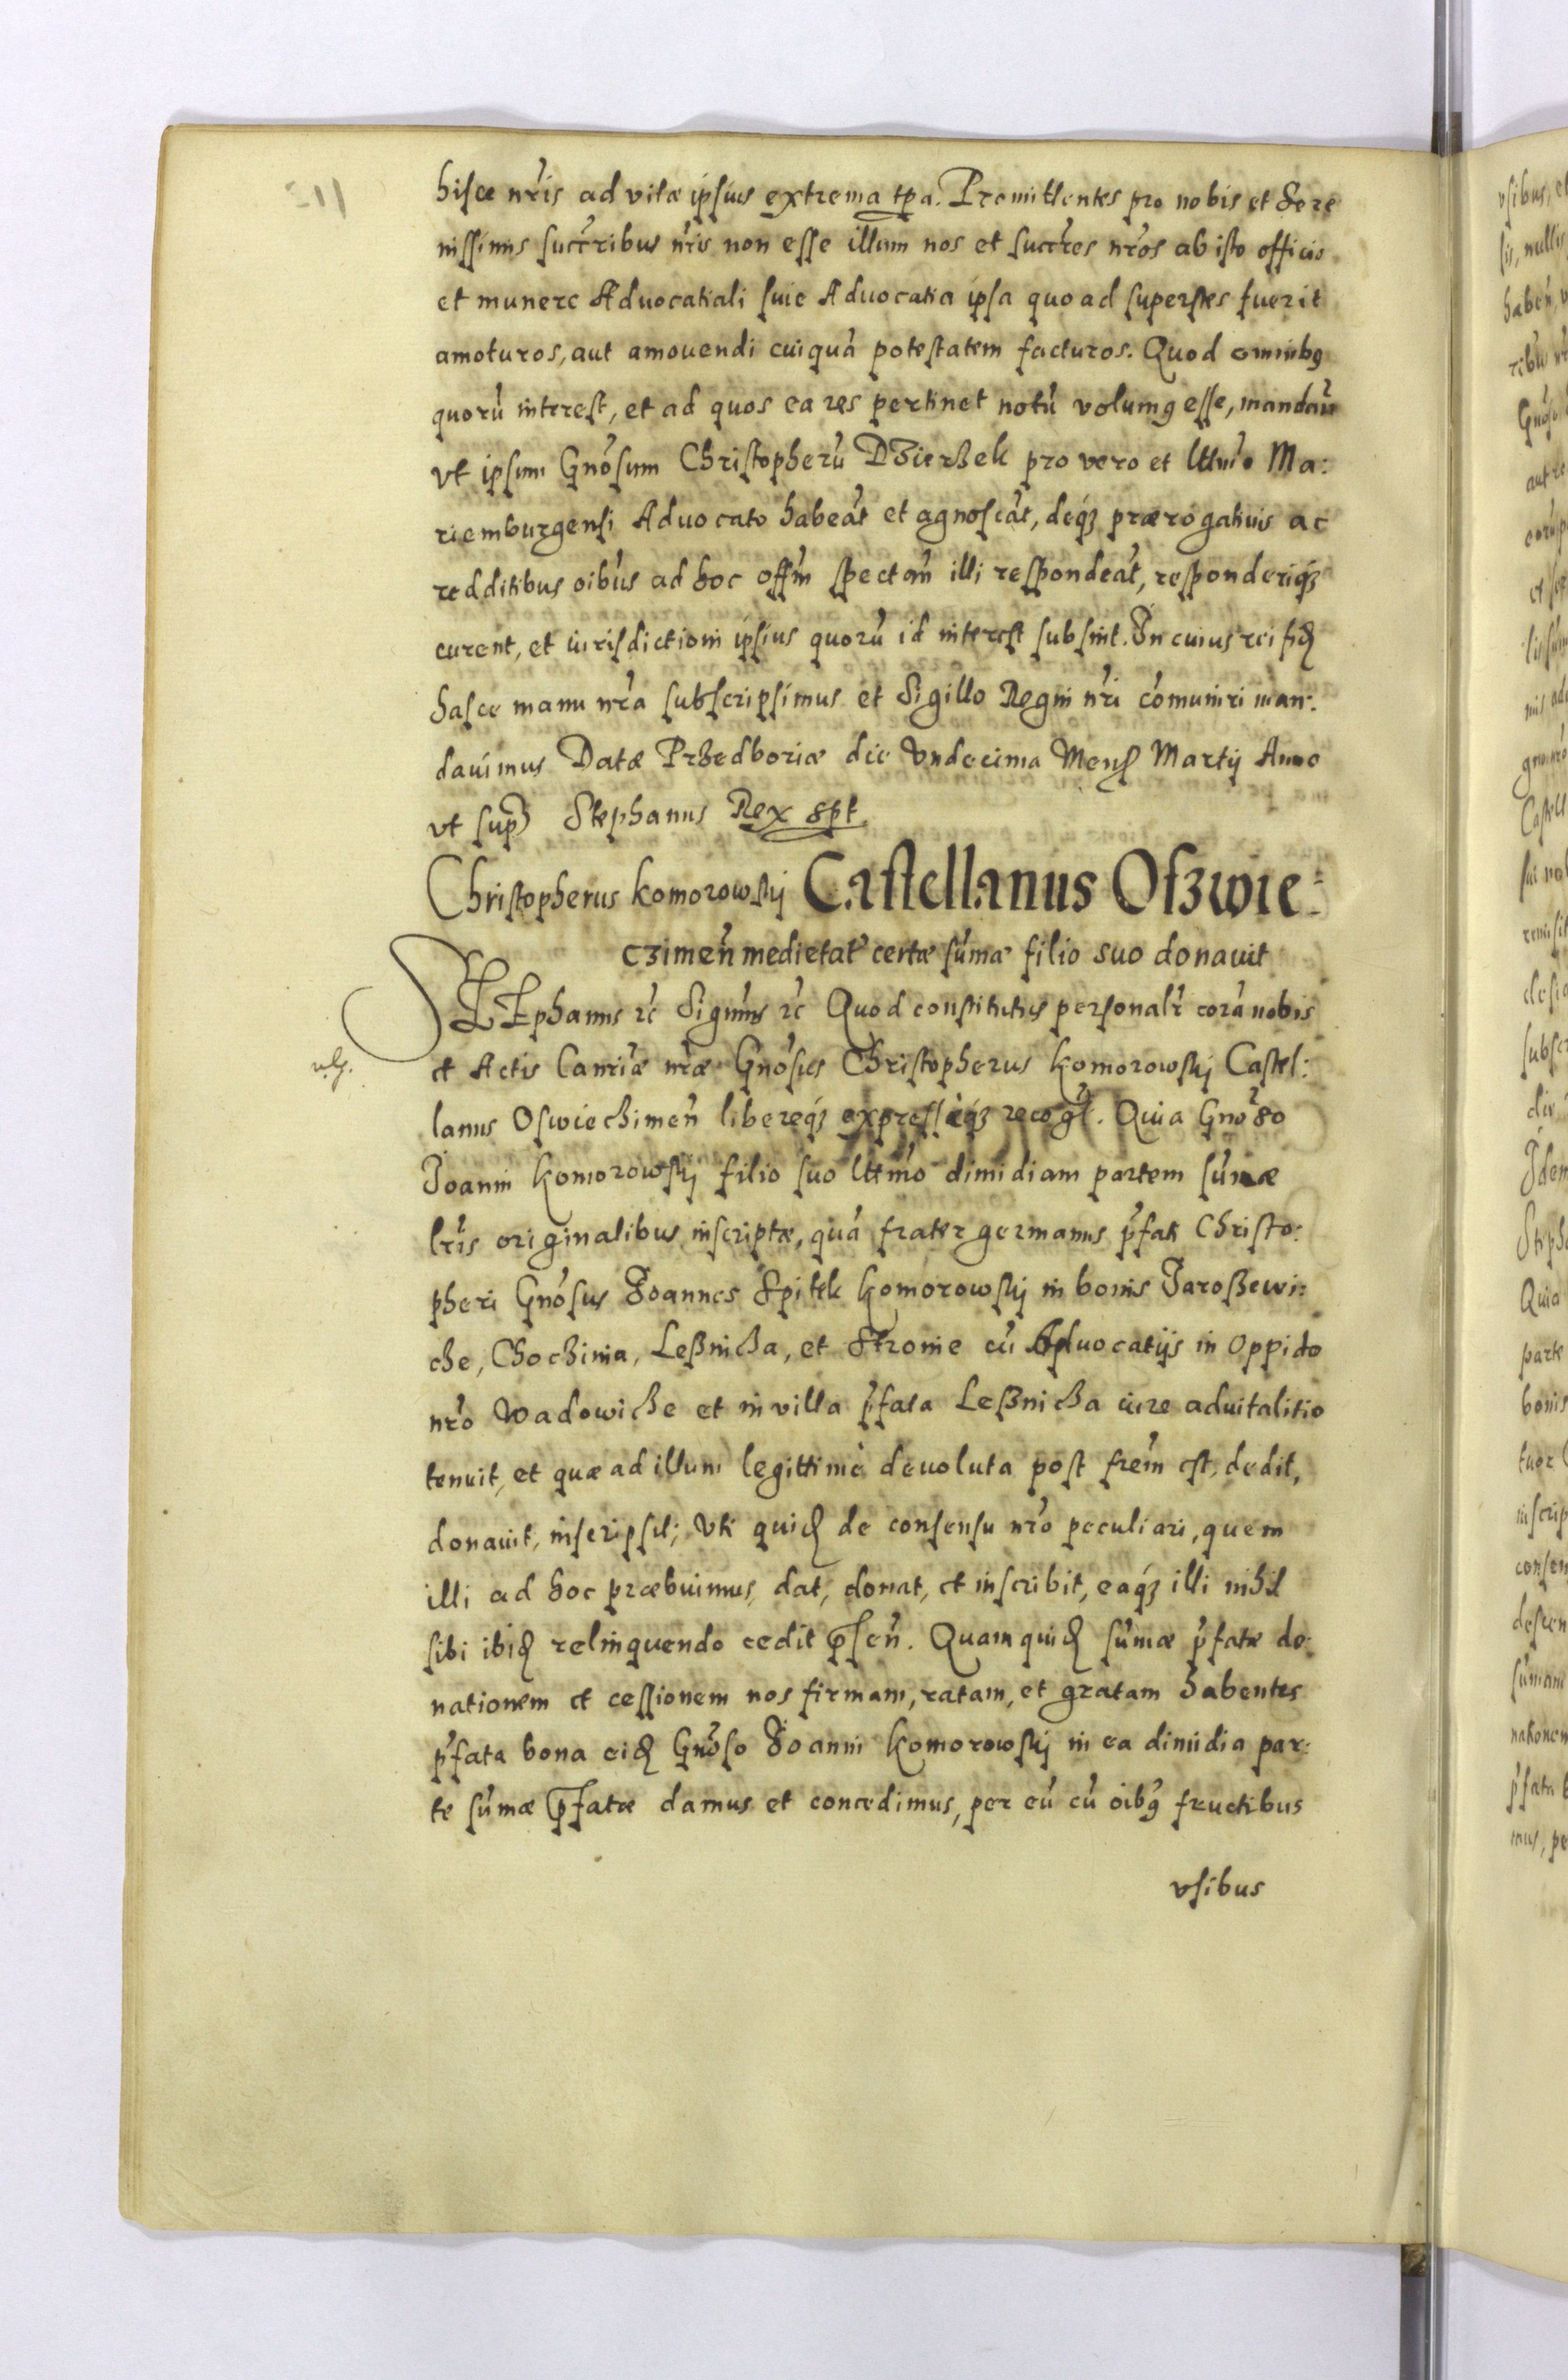 hisce nr̄is ad vitæ ipsius extrema tpa. Promittentes pro nobis et Sere
nissimis succr̄ibus nr̄is non esse illum nos et succr̄es nr̄os ab isto officio
et munere Aduocatiali siue Aduocatia ipsa quoad superstes fuerit
amoturos, aut amouendi cuiquā potestatem facturos. Quod omnibꝫ
quorū interest, et ad quos ea res pertinet notū volumꝫ esse, mandaū
vt ipsum Gnōsum Christopherū Dzierzek pro vero et lttimo Ma:
riemburgensi Aduocato habeāt et agnoscāt, deqꝫ prærogatiuis ac
redditibus oibus ad hoc offm̄ spectan̄ illi respondeāt, responderiqꝫ
curent, et iurisdictioni ipsius quorū id interest subsint. In cuius rei fiđ
hasce manu nr̄a subscripsimus et Sigillo Regni nr̄i cōmuniri man:
dauimus Datæ Przedboriæ die Vndecima Mens̄ Martij Anno
vt sup̄ Stephanus Rex spt
Christopherus Komorowskij Castellanus Oszwie:
czimen̄ medietat̄ certæ sūmæ filio suo donauit
STEphanus ꝛc̄ Signūs ꝛc̄ Quod constitutus personalr̄ corā nobis
et Actis Canr̄iæ nr̄æ Gnōsus Christopherus Komorowskij Castel:
lanus Oswiechimen̄ libereqꝫ expresseqꝫ recogt̄. Quia Gnōso
Joanni Komorowskij filio suo lttimo dimidiam partem sūmæ
lr̄is originalibus inscriptæ, quā frater germanus p̄fati Christo:
pheri Gnōsus Joannes Spitek Komorowskij in bonis Jaroszewi:
che, Chochinia, Lesznicza, et Stronie cū Aduocatijs in Oppido
nr̄o Wadowicze et in villa p̄fata Lesznicza iure aduitalitio
tenuit, et quæ ad illum legittimè deuoluta post frem̄ est, dedit,
donauit, inscripsit; Vti quiđ de consensu nr̄o peculiari, quem
illi ad hoc præbuimus, dat, donat, et inscribit, eaqꝫ illi nihil
sibi ibiđ relinquendo cedit p̄sen̄. Quam quiđ sūmæ p̄fatæ do:
nationem et cessionem nos firmam, ratam, et gratam habentes
p̄fata bona eiđ Gnōso Joanni Komorowskij in ea dimidia par:
te sūmæ p̄fatæ damus et concedimus, per eū cū oibꝫ fructibus
vsibus